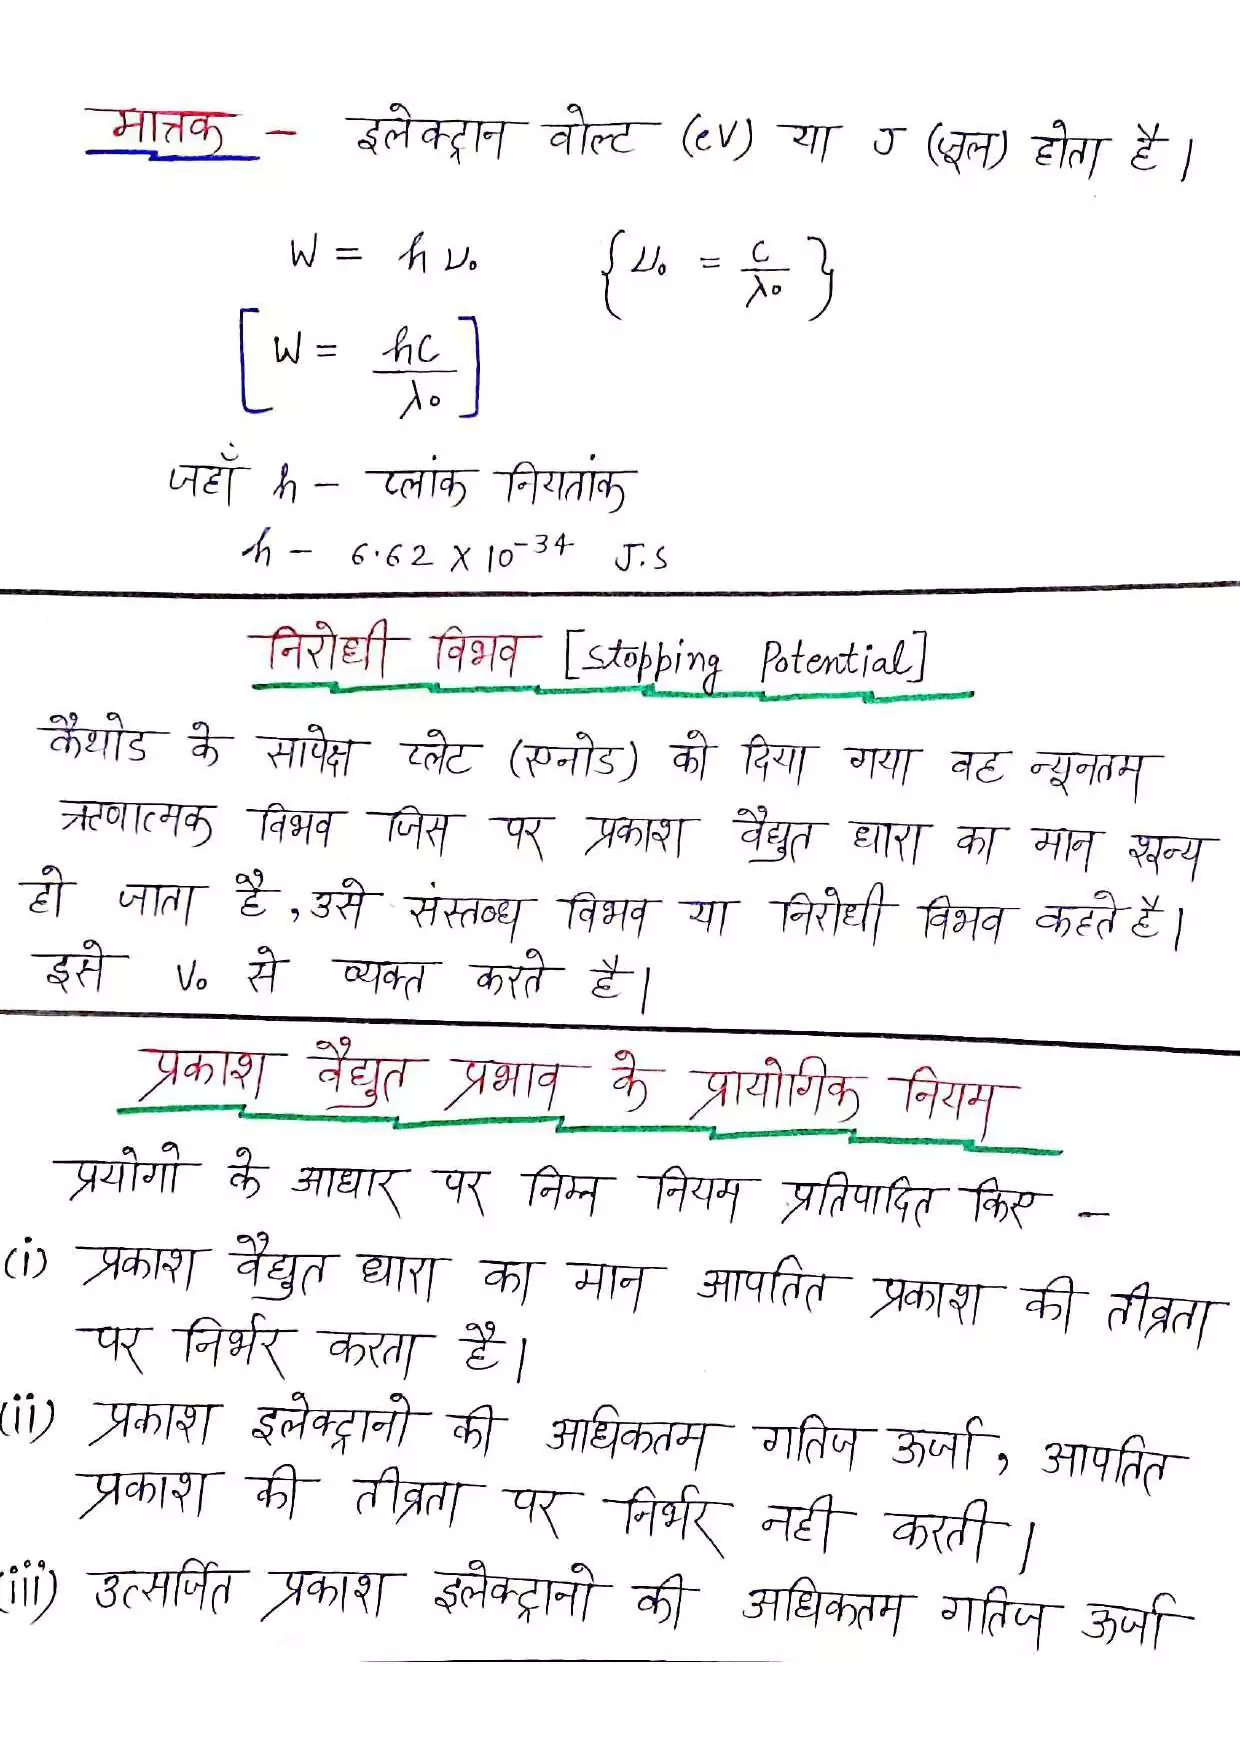 मात्रक - इलेक्ट्रान वोल्ट (eV) या J (जूल) होता है।
W = hν₀ {ν₀ = c/λ₀}
[W = hc/λ₀]
जहाँ h - प्लांक नियतांक
h - 6.62 × 10⁻³⁴ J.S
निरोधी विभव [Stopping Potential]
कैथोड के सापेक्ष प्लेट (एनोड) को दिया गया वह न्यूनतम
ऋणात्मक विभव जिस पर प्रकाश वैद्युत धारा का मान शून्य
हो जाता है, उसे संस्तब्ध विभव या निरोधी विभव कहते है।
इसे V₀ से व्यक्त करते है।
प्रकाश वैद्युत प्रभाव के प्रायोगिक नियम
प्रयोगो के आधार पर निम्न नियम प्रतिपादित किए -
(i) प्रकाश वैद्युत धारा का मान आपतित प्रकाश की तीव्रता
पर निर्भर करता है।
(ii) प्रकाश इलेक्ट्रानो की अधिकतम गतिज ऊर्जा, आपतित
प्रकाश की तीव्रता पर निर्भर नही करती।
(iii) उत्सर्जित प्रकाश इलेक्ट्रानो की अधिकतम गतिज ऊर्जा